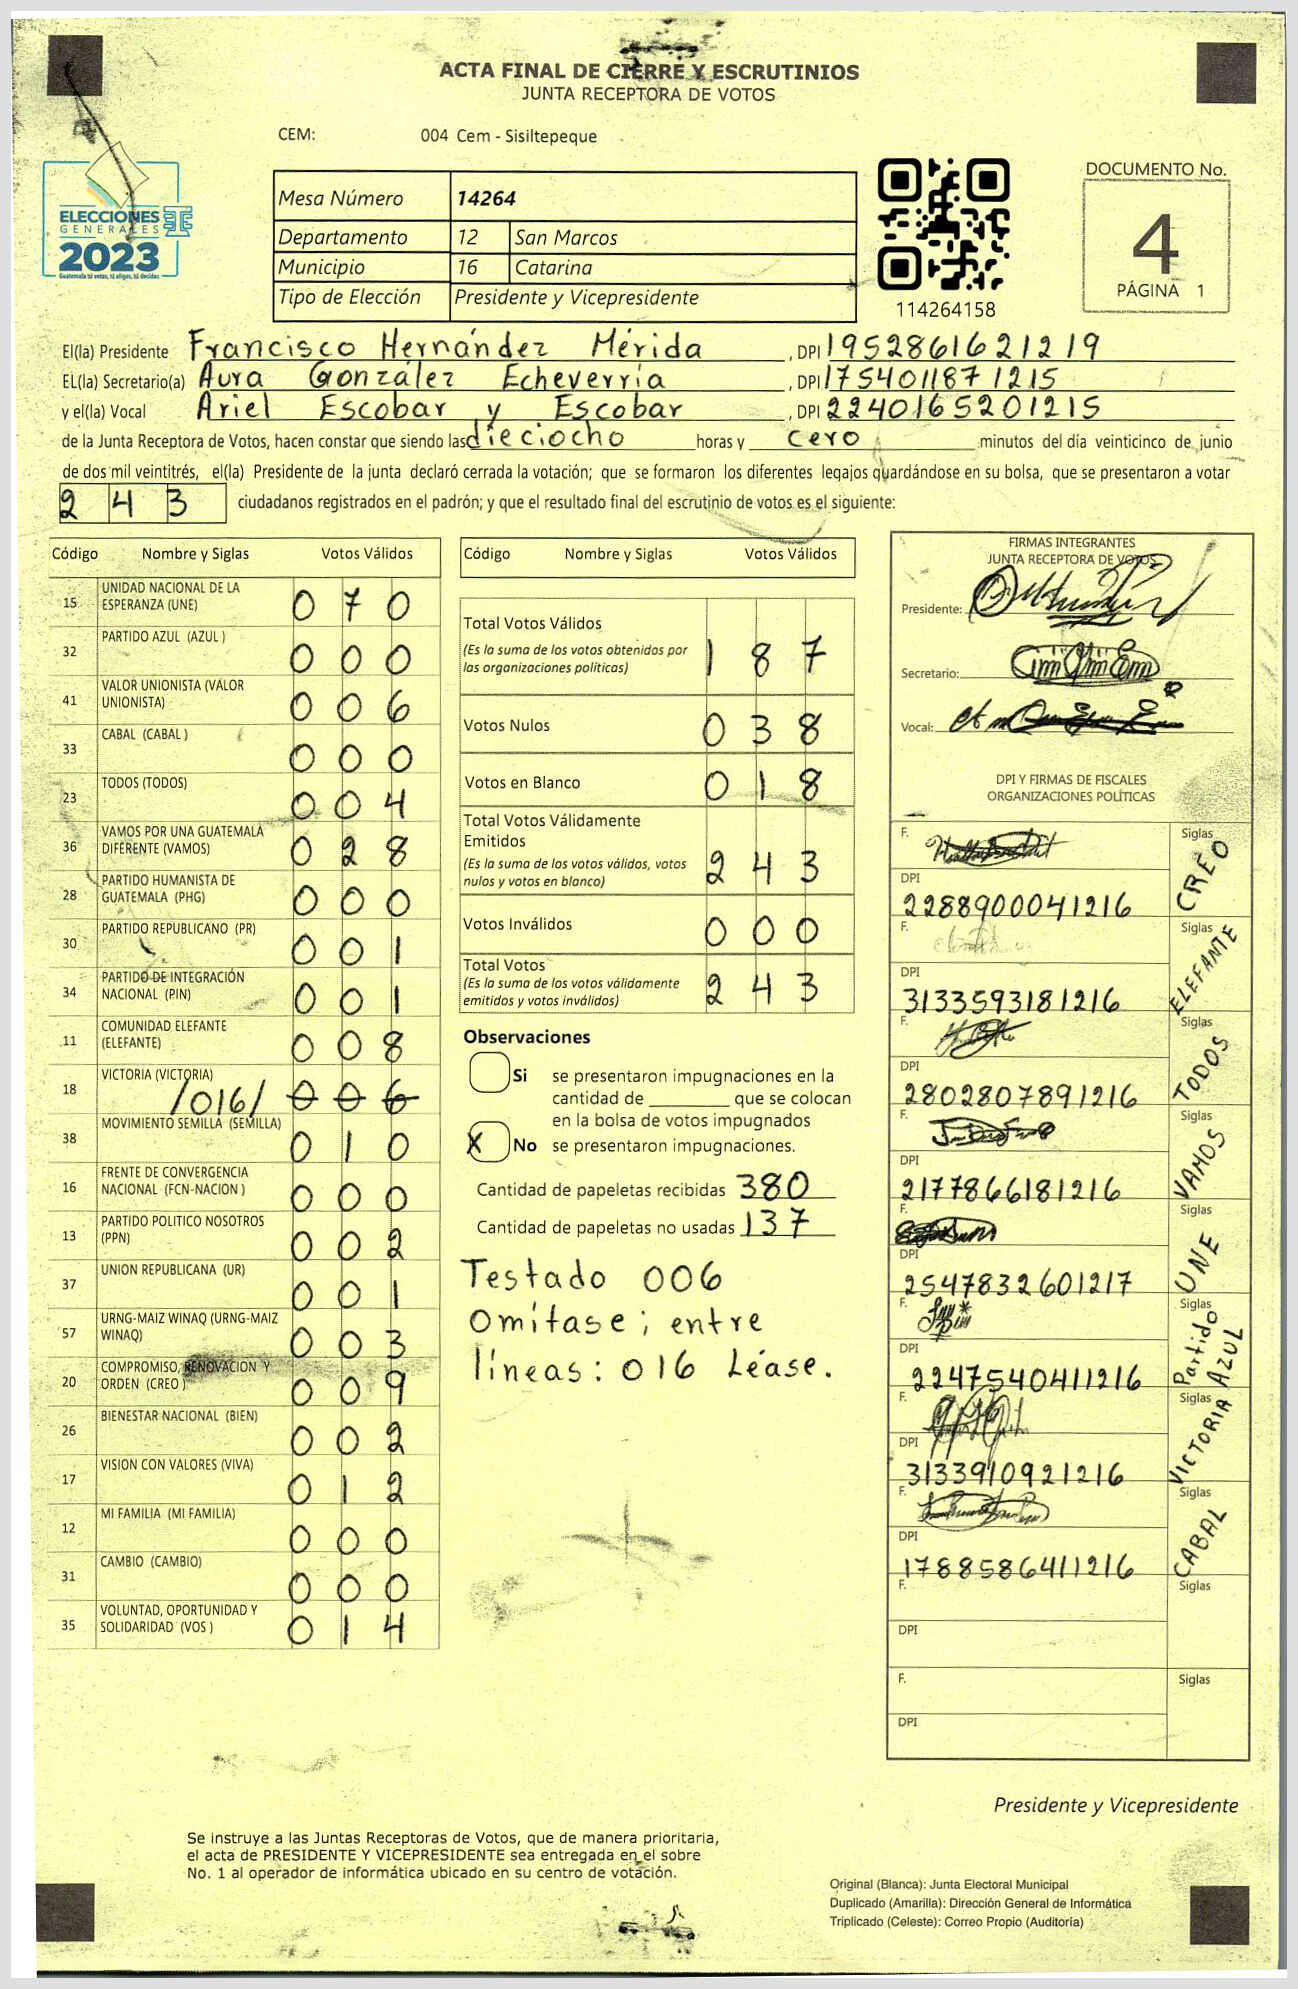 ACTA FINAL DE CIERRE Y ESCRUTINIOS
JUNTA RECEPTORA DE VOTOS
CEM: 004 Cem - Sisiltepeque
ELECCIONES
GENERALES
2023
Guatemala tú votas, tú eliges, tú decides
Mesa Número 14264
Departamento 12 San Marcos
Municipio 16 Catarina
Tipo de Elección Presidente y Vicepresidente
114264158
DOCUMENTO No.
4
PÁGINA 1
El(la) Presidente Francisco Hernández Mérida, DPI 1952861621219
EL(la) Secretario(a) Aura González Echeverría, DPI 1754011871215
y el(la) Vocal Ariel Escobar y Escobar, DPI 2240165201215
de la Junta Receptora de Votos, hacen constar que siendo las dieciocho horas y cero minutos del día veinticinco de junio
de dos mil veintitrés, el(la) Presidente de la junta declaró cerrada la votación; que se formaron los diferentes legajos guardándose en su bolsa, que se presentaron a votar
243 ciudadanos registrados en el padrón; y que el resultado final del escrutinio de votos es el siguiente:
Código Nombre y Siglas Votos Válidos
15 UNIDAD NACIONAL DE LA ESPERANZA (UNE) 070
32 PARTIDO AZUL (AZUL ) 000
41 VALOR UNIONISTA (VALOR UNIONISTA) 006
33 CABAL (CABAL ) 000
23 TODOS (TODOS) 004
36 VAMOS POR UNA GUATEMALA DIFERENTE (VAMOS) 028
28 PARTIDO HUMANISTA DE GUATEMALA (PHG) 000
30 PARTIDO REPUBLICANO (PR) 001
34 PARTIDO DE INTEGRACIÓN NACIONAL (PIN) 001
11 COMUNIDAD ELEFANTE (ELEFANTE) 008
18 VICTORIA (VICTORIA) /016/ 006
38 MOVIMIENTO SEMILLA (SEMILLA) 010
16 FRENTE DE CONVERGENCIA NACIONAL (FCN-NACION ) 000
13 PARTIDO POLITICO NOSOTROS (PPN) 002
37 UNION REPUBLICANA (UR) 001
57 URNG-MAIZ WINAQ (URNG-MAIZ WINAQ) 003
20 COMPROMISO, RENOVACION Y ORDEN (CREO ) 009
26 BIENESTAR NACIONAL (BIEN) 002
17 VISION CON VALORES (VIVA) 012
12 MI FAMILIA (MI FAMILIA) 000
31 CAMBIO (CAMBIO) 000
35 VOLUNTAD, OPORTUNIDAD Y SOLIDARIDAD (VOS ) 014
Código Nombre y Siglas Votos Válidos
Total Votos Válidos 187
(Es la suma de los votos obtenidos por
las organizaciones politicas)
Votos Nulos 038
Votos en Blanco 018
Total Votos Válidamente
Emitidos 243
(Es la suma de los votos válidos, votos
nulos y votos en blanco)
Votos Inválidos 000
Total Votos 243
(Es la suma de los votos válidamente
emitidos y votos inválidos)
Observaciones
Si se presentaron impugnaciones en la
cantidad de ________ que se colocan
en la bolsa de votos impugnados
X No se presentaron impugnaciones.
Cantidad de papeletas recibidas 380
Cantidad de papeletas no usadas 137
Testado 006
Omítase; entre
líneas: 016 Léase.
FIRMAS INTEGRANTES
JUNTA RECEPTORA DE VOTOS
Presidente:
Secretario:
Vocal:
DPI Y FIRMAS DE FISCALES
ORGANIZACIONES POLÍTICAS
F. Siglas CREO
DPI 2288900041216
F. Siglas ELEFANTE
DPI 3133593181216
F. Siglas TODOS
DPI 2802807891216
F. Siglas VAMOS
DPI 2177866181216
F. Siglas UNE
DPI 2547832601217
F. Siglas Partido AZUL
DPI 2247540411216
F. Siglas VICTORIA
DPI 3133910921216
F. Siglas CABAL
DPI 1788586411216
F. Siglas
DPI
F. Siglas
DPI
Presidente y Vicepresidente
Se instruye a las Juntas Receptoras de Votos, que de manera prioritaria,
el acta de PRESIDENTE Y VICEPRESIDENTE sea entregada en el sobre
No. 1 al operador de informática ubicado en su centro de votación.
Original (Blanca): Junta Electoral Municipal
Duplicado (Amarilla): Dirección General de Informática
Triplicado (Celeste): Correo Propio (Auditoría)